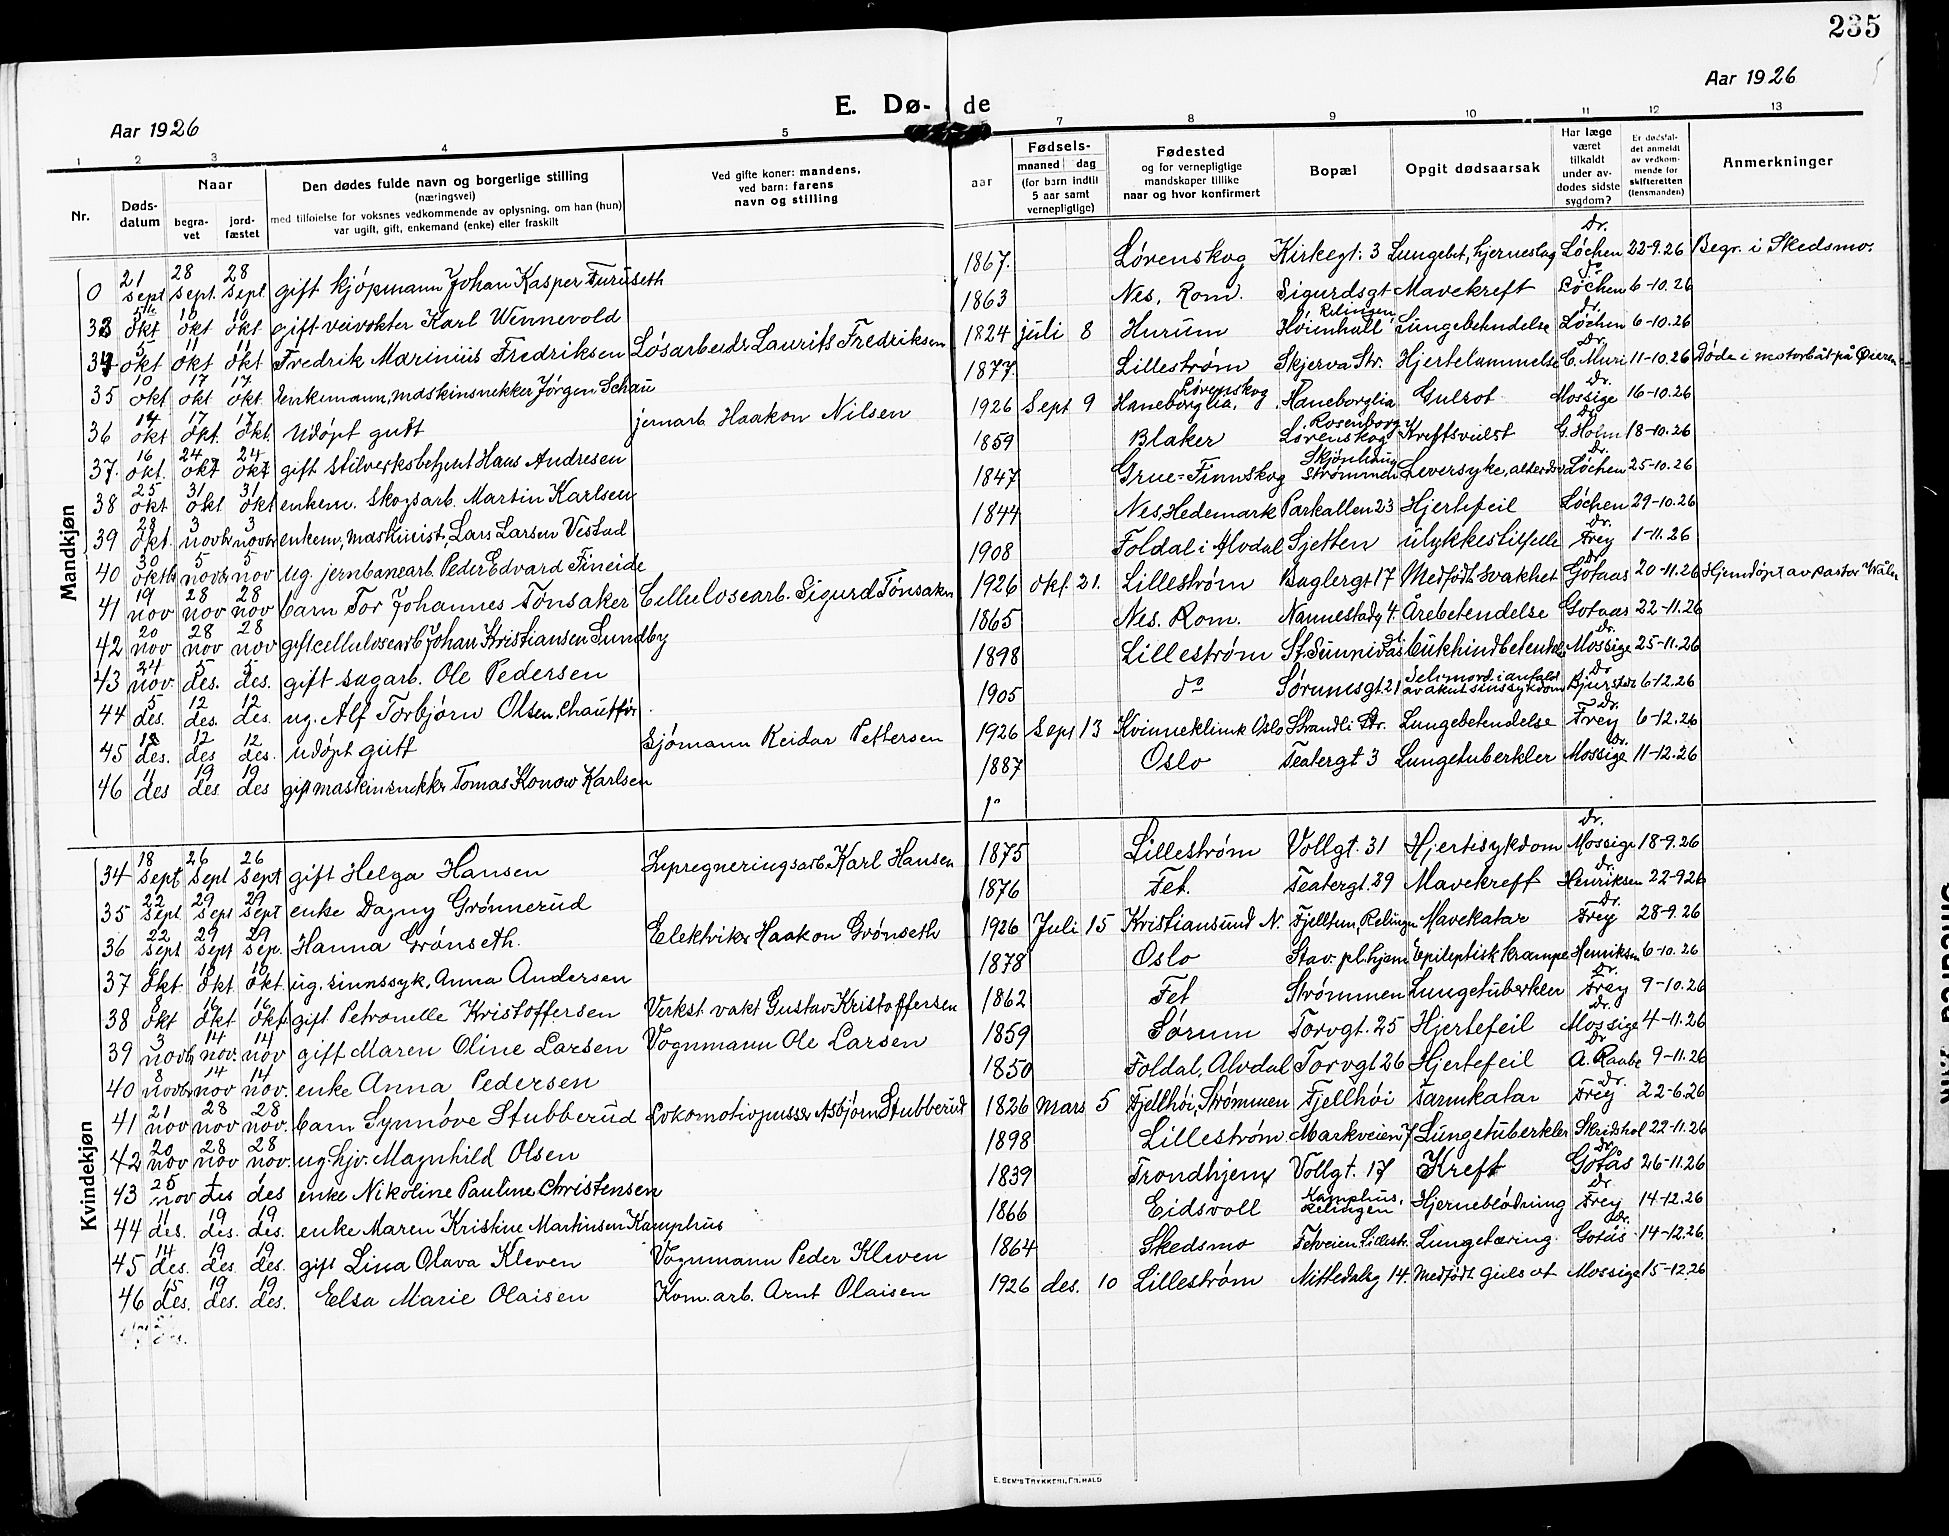 235
Aar 1926
E. Dø- de
Aar 1926
1 2 3 4 5 7 8 9 10 11 12 13
Nr.
Døds-datum
Naar
begra-vet
jord-fæstet
Den dødes fulde navn og borgerlige stilling
(næringsvei)
med tilføielse for voksnes vedkommende av oplysning, om han (hun) var ugift, gift, enkemand (enke) eller fraskilt
Ved gifte koner: mandens, ved barn: farens navn og stilling
aar
Fødsels-
maaned dag
(for barn indtil 5 aar samt vernepligtige)
Fødested
og for vernepligtige mandskaper tillike naar og hvor konfirmert
Bopæl
Opgit dødsaarsak
Har læge været tilkaldt under av-dødes sidste sygdom?
Er dødsfal-det anmeldt av vedkom-mende for skifteretten (lensmanden)
Anmerkninger
Mandkjøn
0 21 sept 28 sept. 28 sept. gift kjøpmann Johan Kasper Furuseth 1867. Lørenskog Kirkegt. 3 Lungebet, hjerneslag Dr. Løchen 22-9.26 Begr. i Skedsmo.
33 okt 10 okt 10 okt gift veivokter Karl Winnevold 1863 Nes, Rom. Sigurdsgt Mavekreft Løchen 6-10.26
34 5 okt 11 okt 11 okt Fredrik Marinius Fredriksen Løsarbeider Laurits Fredriksen 1824 juli 8 Hurum Høienhall Relingen Lungebetendelse Dr. Løchen 6-10.26
35 10 okt 17 okt 17 okt. Enkemann, maskinsnekker Jørgen Schau 1877. Lillestrøm Skjerva Str. Hjertelammelse Dr. C. Muri 11-10.26 Døde i motorbåt på Øieren
36 14 okt 17 okt. 17 okt. Udøpt gutt jernarb. Haakon Nilsen 1926 Sept 9 Haneborglia, Lørenskog Haneborglia Gulsot Dr. Mossige 16-10.26
37. 16 okt. 24 okt 24 okt gift stilverksbetjent Hans Andresen 1859 Blaker Rosenborg Lørenskog Kreftsvulst Dr. G. Holm 18-10.26
38 25 okt 31 okt 31 okt enkem. skogsarb. Martin Karlsen 1847 Grue-Finnskog Skjønhaug Strømmen Leversyke, alderdom Dr. Løchen 25-10.26
39 28 okt. 3 novbr 3 novbr enkem, maskinist, Lars Larsen Vestad 1844 Nes, Hedemark Parkalleen 23 Hjertefeil Løchen 29-10.26
40 30 oktbr 5 novbr 5 nov ug. jernbanearb. Peder Edvard Fineide 1908 Foldal i Alvdal Sjetten ulykkestilfelle Dr. Frey 1-11.26
41 19 nov 28 nov 28 nov barn Tor Johannes Tønsaker Cellulosearb. Sigurd Tønsaker 1926 okt. 21. Lillestrøm Baglergt 17 Medfødt svakhet Dr. Gotaas 20-11.26 Hjemdøpt av pastor Wåler
42 20 nov 28 nov 28 nov gift cellulosearb Johan Kristiansen Sundby 1865 Nes. Rom. Nannestadg 4. Årebetendelse Gotaas 22-11.26
43 24 nov. 5 des. 5 des. gift sagarb. Ole Pedersen 1898 Lillestrøm St. Sunnivas gt Bukhindbetendelse Dr. Mossige 25-11.26
44 5 des. 12 des. 12 des. ug. Alf Torbjørn Olsen, Chauffør. 1905 do Sørumsgt. 21 Selvmord i anfald av akut sinssykdom Dr. Bjurstedt 6-12.26
45 des. 12 des 12 des. udøpt gutt Sjømann Reidar Pettersen 1926 Sept 13 Kvinneklinik Oslo Strandli Str. Lungebetendelse Dr. Frey 6-12.26
46 11 des 19 des. 19 des gift maskinsnekker Tomas Konow Karlsen 1887 Oslo Teatergt 3 Lungetuberkler Dr. Mossige 11-12.26
Kvindekjøn
34 18 sept 26 sept 26 sept gift Helga Hansen Inpregneringsarb Karl Hansen 1875 Lillestrøm Vollgt. 31 Hjertesykdom Dr. Mossige 18-9.26
35 22 sept 29 sept 29 sept enke Dagny Grønnerud 1876 Fet. Teatergt. 29 Mavekreft Dr. Henriksen 22-926
36 22 sept 29 sept 29 sep. Hanna Grønseth. Elektriker Haakon Grønseth 1926 Juli 15 Kristiansund N. Fjelltun, Relingen Mavekatar Dr. Frey 28-9.26
37 1 okt. 10 okt 10 okt. ug. sinnssyk, Anna Andersen 1878 Oslo Stav. pl.hjem Epileptisk krampe Henriksen 6-10.26
38 8 okt 16 okt 16 okt. gift Petronelle Kristoffersen Verkst. vakt Gustav Kristoffersen 1862 Fet Strømmen Lungetuberkler Dr. Frey 9-10.26
39 3 novbr 14 nov. 14 nov gift Maren Oline Larsen Vognmann Ole Larsen 1859 Sørum Torvgt. 25 Hjertefeil Dr. Mossige 4-11.26
40 8 novbr 14 nov 14 nov. enke Anna Pedersen 1850 Foldal, Alvdal Torvgt 26 Hjertefeil Dr A. Raabe 9-11.26
41 21 nov 28 nov 28 nov. barn Synnøve Stubberud Lokomotivpusser Asbjørn Stubberud 1826 mars 5 Fjellhøi, Strømmen Fjellhøi Tarmkatar Dr. Frey 22-6.26
42 20 nov 28 nov 28 nov. ug. hjv. Magnhild Olsen 1898 Lillestrøm Markveien 7 Lungetuberkler Skridshol 22-11.26
43 25 nov 1 des 1 des enke Nikoline Pauline Christensen 1839 Trondhjem Vollgt. 17 Kreft Dr Gotås 26-11.26
44 11 des. 19 des. 19 des. enke Maren Kristine Martinsen Kamphus 1866 Eidsvoll Kamphus, Relingen Hjerneblødning Dr Frey 14-12.26
45 14 des. 19 des. 19 des. gift Lina Olava Kleven Vognmann Peder Kleven 1864 Skedsmo Fetveien Lillestr. Lungetæring. Dr. Gotås 14-12.26.
46 15 des. 19 des. 19 des. Elsa Marie Olaisen Kom. arb. Arnt Olaisen 1926 des. 10 Lillestrøm Nittedalsg 14. Medfødt Gulsot Mossige 15-12.26
E. SEM'S TRYKKERI, FR. HALD